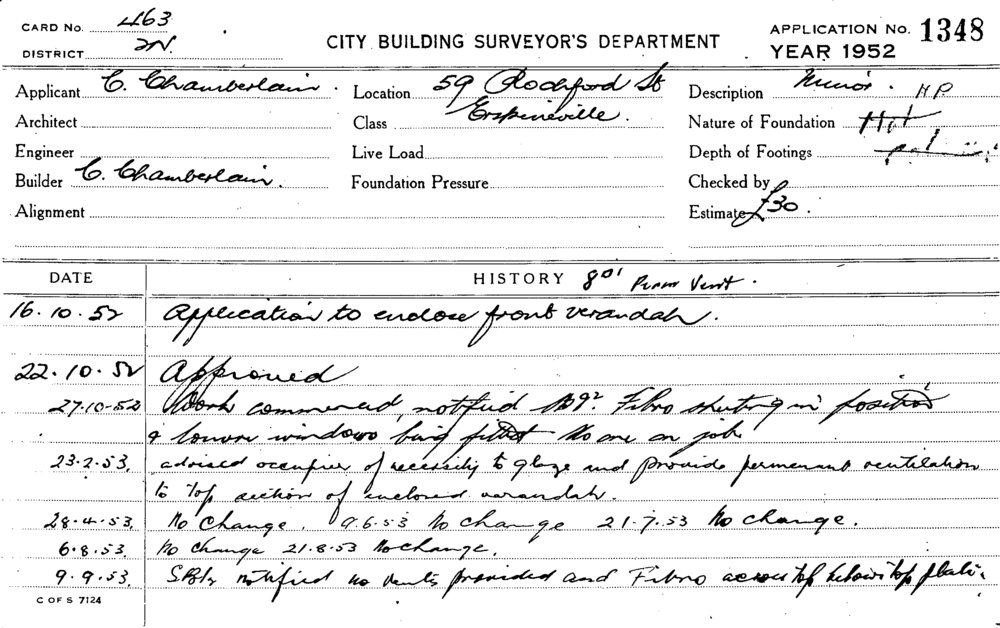 CARD No. 463
DISTRICT 2N.
CITY BUILDING SURVEYOR'S DEPARTMENT
APPLICATION No. 1348
YEAR 1952
Applicant C. Chamberlain.
Location 59 Rochford St
Description Minor. HP
Architect
Class Erskineville.
Nature of Foundation
Engineer
Live Load
Depth of Footings
Builder C. Chamberlain.
Foundation Pressure
Checked by
Alignment
Estimate £30.
DATE HISTORY 801 Perm Vent.
16.10.52 Application to enclose front verandah.
22.10.52 Approved
27.10.52 Work commenced, notified Fibro sheeting in position
& louvre windows being fitted No one on job
23.2.53. advised occupier of necessity to glaze and provide permanent ventilation
to top section of enclosed verandah.
28.4.53. No Change. 9.6.53 No change 21.7.53 No change.
6.8.53. No change 21.8.53 No change.
9.9.53. notified no vents provided and Fibro across top below top plate.
C OF S 7124